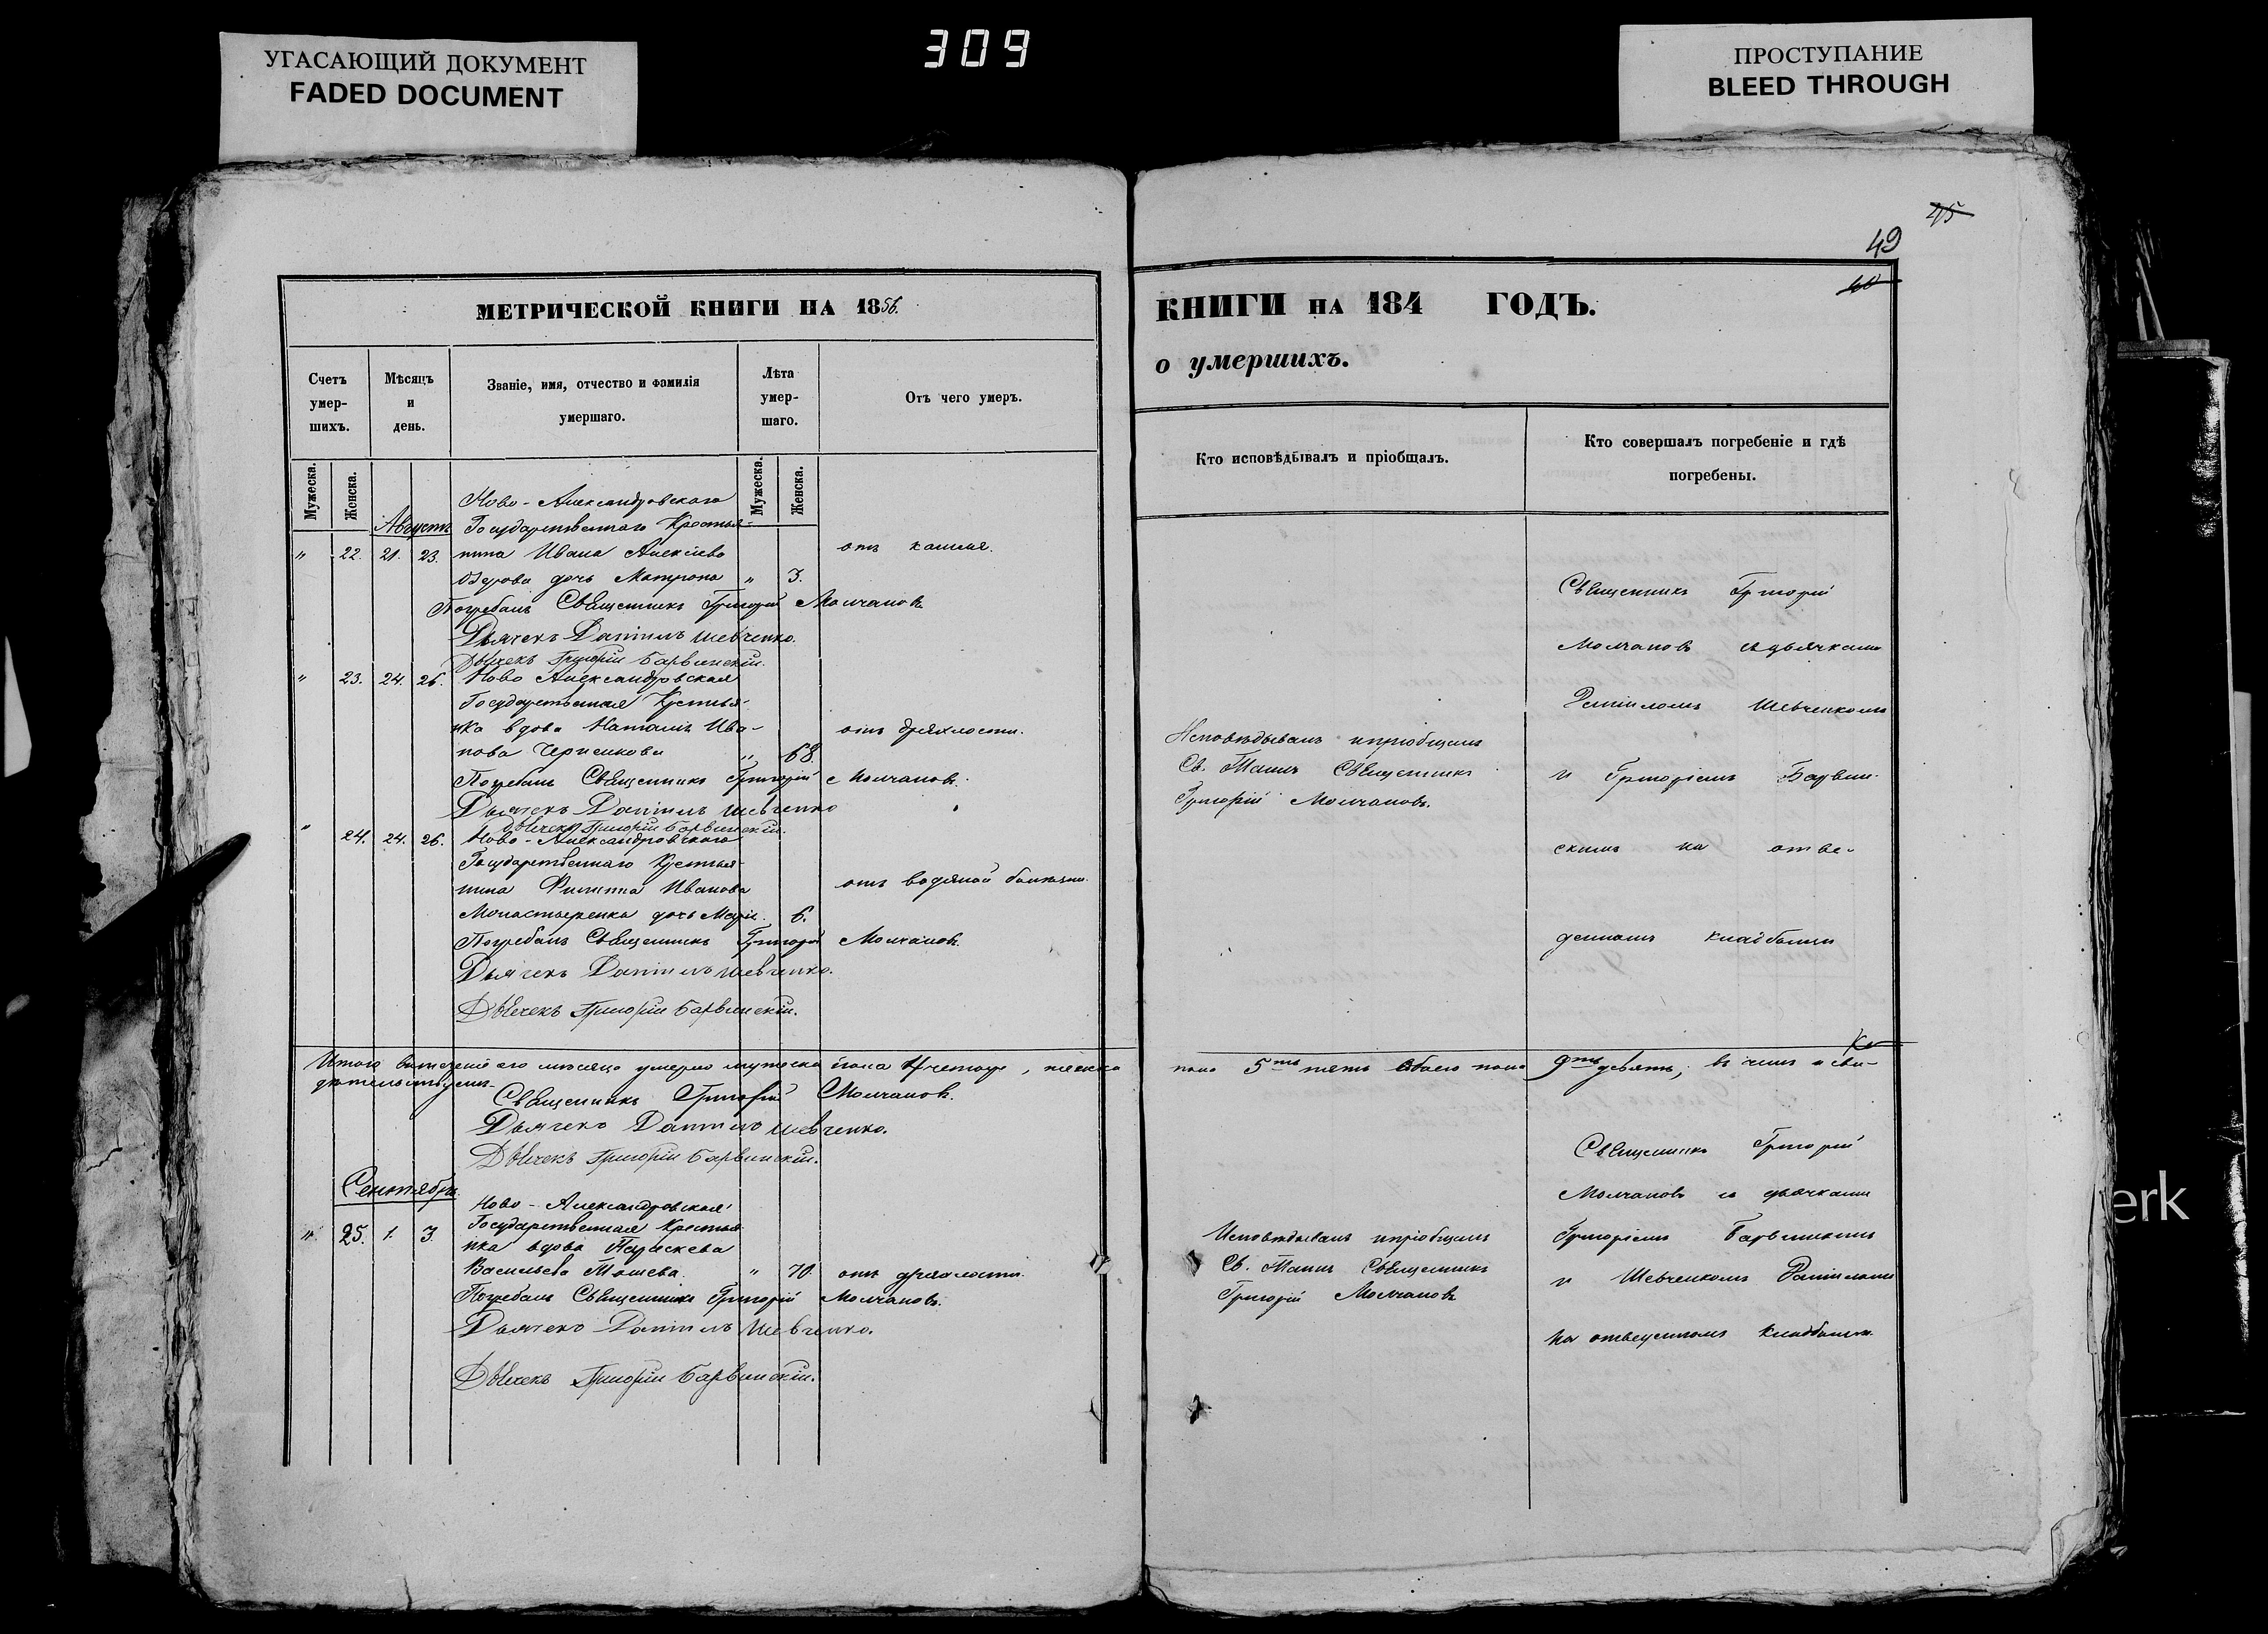 УГАСАЮЩИЙ ДОКУМЕНТ
FADED DOCUMENT
309
ПРОСТУПАНИЕ
BLEED THROUGH
МЕТРИЧЕСКОЙ КНИГИ НА 1856.
Счетъ умер-шихъ.
Мѣсяцъ и день.
Званіе, имя, отчество и фамилія умершаго.
Лѣта умер-шаго.
Отъ чего умеръ.
Мужеска.
Женска.
Мужеска.
Женска.
Августъ
Ново-Александровскаго
Государственнаго Крестья-
" 22. 21. 23. нина Ивана Алексѣева отъ кашля.
дочь Матрона " 3.
Погребалъ Священникъ Григорій Молчановъ
Дьячекъ Даніилъ Шевченко.
Дьячекъ Григорій Барвинскій.
" 23. 24. 26. Ново Александровская
Государственная Крестья-
нка вдова Наталія Ива- отъ дряхлости.
нова " 68.
Погребалъ Священникъ Григорій Молчановъ.
Дьячекъ Даніилъ Шевченко
Дьячекъ Григорій Барвинскій.
" 24. 24. 26. Ново-Александровскаго
Государственнаго Крестья-
нина Филиппа Иванова отъ водяной болѣзни.
Монастыренка дочь Марія. 6.
Погребалъ Священникъ Григорій Молчановъ.
Дьячекъ Даніилъ Шевченко.
Дьячекъ Григорій Барвинскій.
Итого сего мѣсяца умерло мужеска пола 4 четыре, женска
дѣтельствуемъ
Священникъ Григорій Молчановъ.
Дьячекъ Даніилъ Шевченко.
Дьячекъ Григорій Барвинскій.
Сентябрь.
Ново-Александровская
Государственная Крестья-
" 25. 1. 3. нка вдова Параскева
Васильева " 70. отъ дряхлости.
Погребалъ Священникъ Григорій Молчановъ.
Дьячекъ Даніилъ Шевченко.
Дьячекъ Григорій Барвинскій.
49
КНИГИ НА 184 ГОДЪ.
о умершихъ.
Кто исповѣдывалъ и пріобщалъ.
Кто совершалъ погребеніе и гдѣ погребены.
Священникъ Григорій
Молчановъ съ дьячками
Даніиломъ Шевченкомъ
Исповѣдывалъ и пріобщалъ
Св. Таинъ Священникъ
Григорій Молчановъ.
и Григоріемъ Барвин-
скимъ на отве-
денномъ кладбищи
пола 5ть пять обоего пола 9ть девять, въ чемъ и сви-
Священникъ Григорій
Молчановъ съ дьячками
Исповѣдывалъ и пріобщалъ
Св. Таинъ Священникъ
Григорій Молчановъ
Григоріемъ Барвинскимъ
и Шевченкомъ Даніиломъ
на отведенномъ кладбищи.
erk